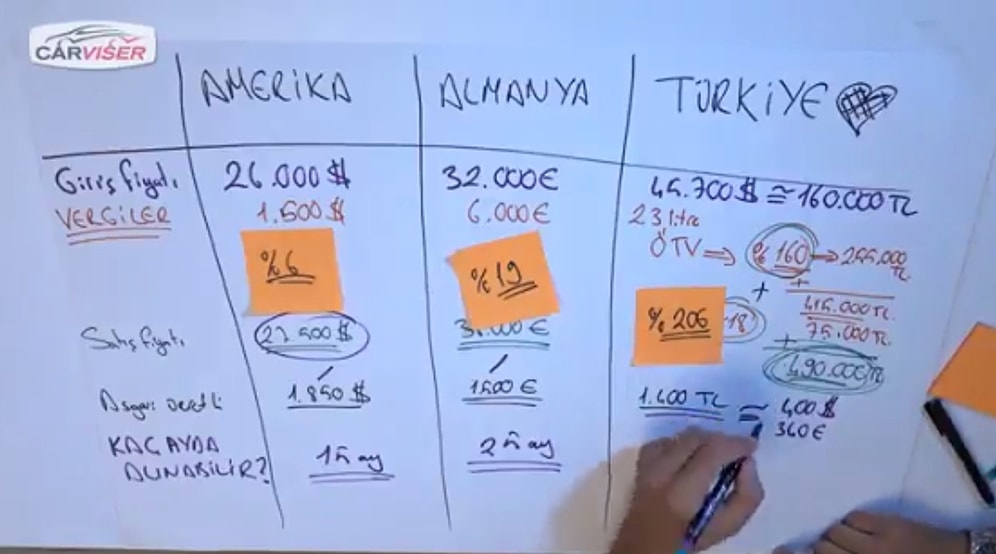 CARVISER
AMERİKA ALMANYA TÜRKİYE
Giriş fiyatı 26.000 $ 32.000 € 45.700 $ ≅ 160.000 TL
VERGİLER 1.500 $ 6.000 € 2.3 litre
ÖTV ⇒ % 160 → 255.000 TL.
%6 %19 + +
415.000 TL.
%206 18 75.000 TL.
+
Satış fiyatı 27.500 $ 38.000 € 490.000 TL
Asgari ücretli 1.850 $ 1500 € 1.400 TL ≅ 400 $
360 €
KAÇ AYDA
ALINABİLİR? 15 ay 25 ay